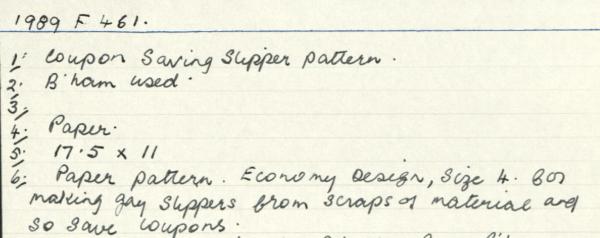 1989 F 461.
1: Coupon Saving Slipper pattern.
2. B'ham used.
3.
4. Paper.
5. 17.5 x 11
6. Paper pattern. Economy Design, Size 4. for
making gay slippers from scraps of material and
so save coupons.